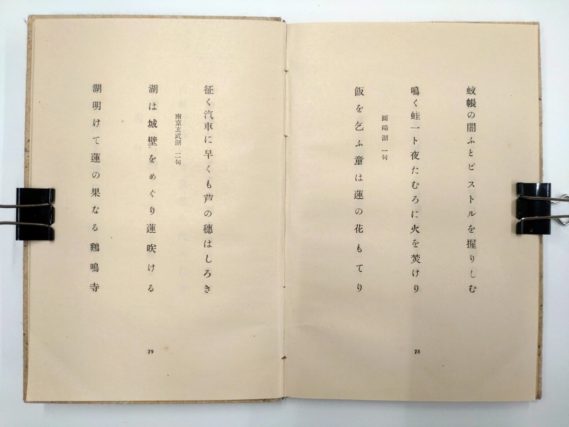 蚊帳の闇ふとピストルを握りしむ
鳴く蛙一ト夜たむろに火を焚けり
鄱陽湖 一句
飯を乞ふ童は蓮の花もてり
28
征く汽車に早くも芦の穂はしろき
南京玄武湖 二句
湖は城壁をめぐり蓮咲ける
湖明けて蓮の果なる鶏鳴寺
29